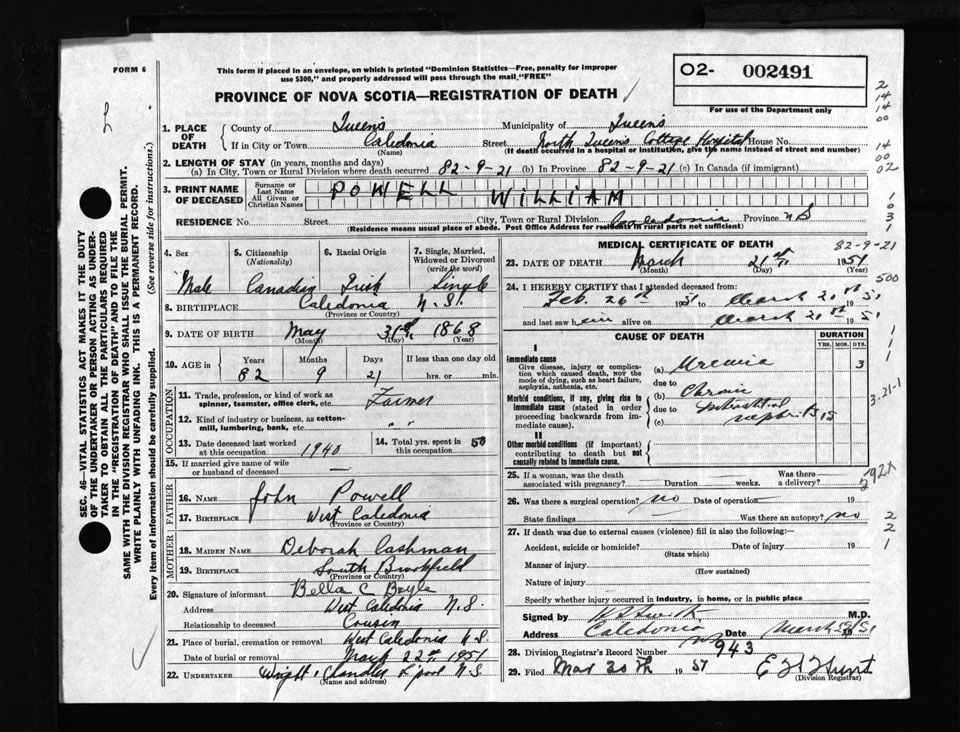 FORM 6
This form if placed in an envelope, on which is printed "Dominion Statistics—Free, penalty for improper
use $300," and properly addressed will pass through the mail "FREE"
PROVINCE OF NOVA SCOTIA—REGISTRATION OF DEATH
O2- 002491
For use of the Department only
2
14
14
00
14
00
02
1
0
3
1
SEC. 46—VITAL STATISTICS ACT MAKES IT THE DUTY
OF THE UNDERTAKER OR PERSON ACTING AS UNDER-
TAKER TO OBTAIN ALL THE PARTICULARS REQUIRED
IN THE "REGISTRATION OF DEATH" AND TO FILE THE
SAME WITH THE DIVISION REGISTRAR WHO SHALL ISSUE THE BURIAL PERMIT.
WRITE PLAINLY WITH UNFADING INK. THIS IS A PERMANENT RECORD.
(See reverse side for instructions.)
Every item of information should be carefully supplied.
1. PLACE OF DEATH
County of Queens Municipality of Queens
If in City or Town Caledonia Street North Queens Cottage Hospital House No.
(Name) (If death occurred in a hospital or institution, give the name instead of street and number)
2. LENGTH OF STAY (in years, months and days)
(a) In City, Town or Rural Division where death occurred 82-9-21 (b) In Province 82-9-21 (c) In Canada (if immigrant)
3. PRINT NAME OF DECEASED
Surname or Last Name POWELL
All Given or Christian Names WILLIAM
RESIDENCE No. Street City, Town or Rural Division Caledonia Province N S
(Residence means usual place of abode. Post Office Address for residents in rural parts not sufficient)
4. Sex 5. Citizenship (Nationality) 6. Racial Origin 7. Single, Married, Widowed or Divorced (write the word)
Male Canadian Irish Single
8. BIRTHPLACE Caledonia N.S.
(Province or Country)
9. DATE OF BIRTH May 31st 1868
(Month) (Day) (Year)
10. AGE in Years Months Days If less than one day old
82 9 21 hrs. or min.
OCCUPATION
11. Trade, profession, or kind of work as
spinner, teamster, office clerk, etc. Farmer
12. Kind of industry or business, as cotten-
mill, lumbering, bank, etc. " "
13. Date deceased last worked
at this occupation 1940
14. Total yrs. spent in
this occupation 50
15. If married give name of wife
or husband of deceased —
FATHER
16. NAME John Powell
17. BIRTHPLACE West Caledonia
(Province or Country)
MOTHER
18. MAIDEN NAME Deborah Cashman
19. BIRTHPLACE South Brookfield
(Province or Country)
20. Signature of informant Bella C Boyle
Address West Caledonia N.S.
Relationship to deceased Cousin
21. Place of burial, cremation or removal West Caledonia N.S.
Date of burial or removal March 22nd 1951
22. UNDERTAKER Wright & Chandler L'pool N.S.
(Name and address)
MEDICAL CERTIFICATE OF DEATH
82-9-21
23. DATE OF DEATH March 21st 1951
(Month) (Day) (Year)
500
24. I HEREBY CERTIFY that I attended deceased from:
Feb. 26th 1951 to March 21st 1951
and last saw him alive on March 21st 1951
1
1
1
CAUSE OF DEATH DURATION
YRS. MOS. DYS.
I
Immediate cause
Give disease, injury or complica-
tion which caused death, NOR the
mode of dying, such as heart failure,
asphyxia, asthenia, etc.
(a) Uremia 3
due to
Morbid conditions, if any, giving rise to
immediate cause (stated in order
proceeding backwards from im-
mediate cause).
(b) Chronic
due to interstitial
(c) nephritis 15
3-21-1
II
Other morbid conditions (if important)
contributing to death but not
causally related to immediate cause.
25. If a woman, was the death
associated with pregnancy? Duration weeks. Was there
a delivery?
592X
26. Was there a surgical operation? no Date of operation 19
State findings Was there an autopsy? no
2
2
1
27. If death was due to external causes (violence) fill in also the following:—
Accident, suicide or homicide? Date of injury 19
(State which)
Manner of injury
(How sustained)
Nature of injury
Specify whether injury occurred in industry, in home, or in public place
Signed by M.D.
Address Caledonia NS Date March 51
28. Division Registrar's Record Number 943
29. Filed Mar 30th 1951 Hunt
(Division Registrar)